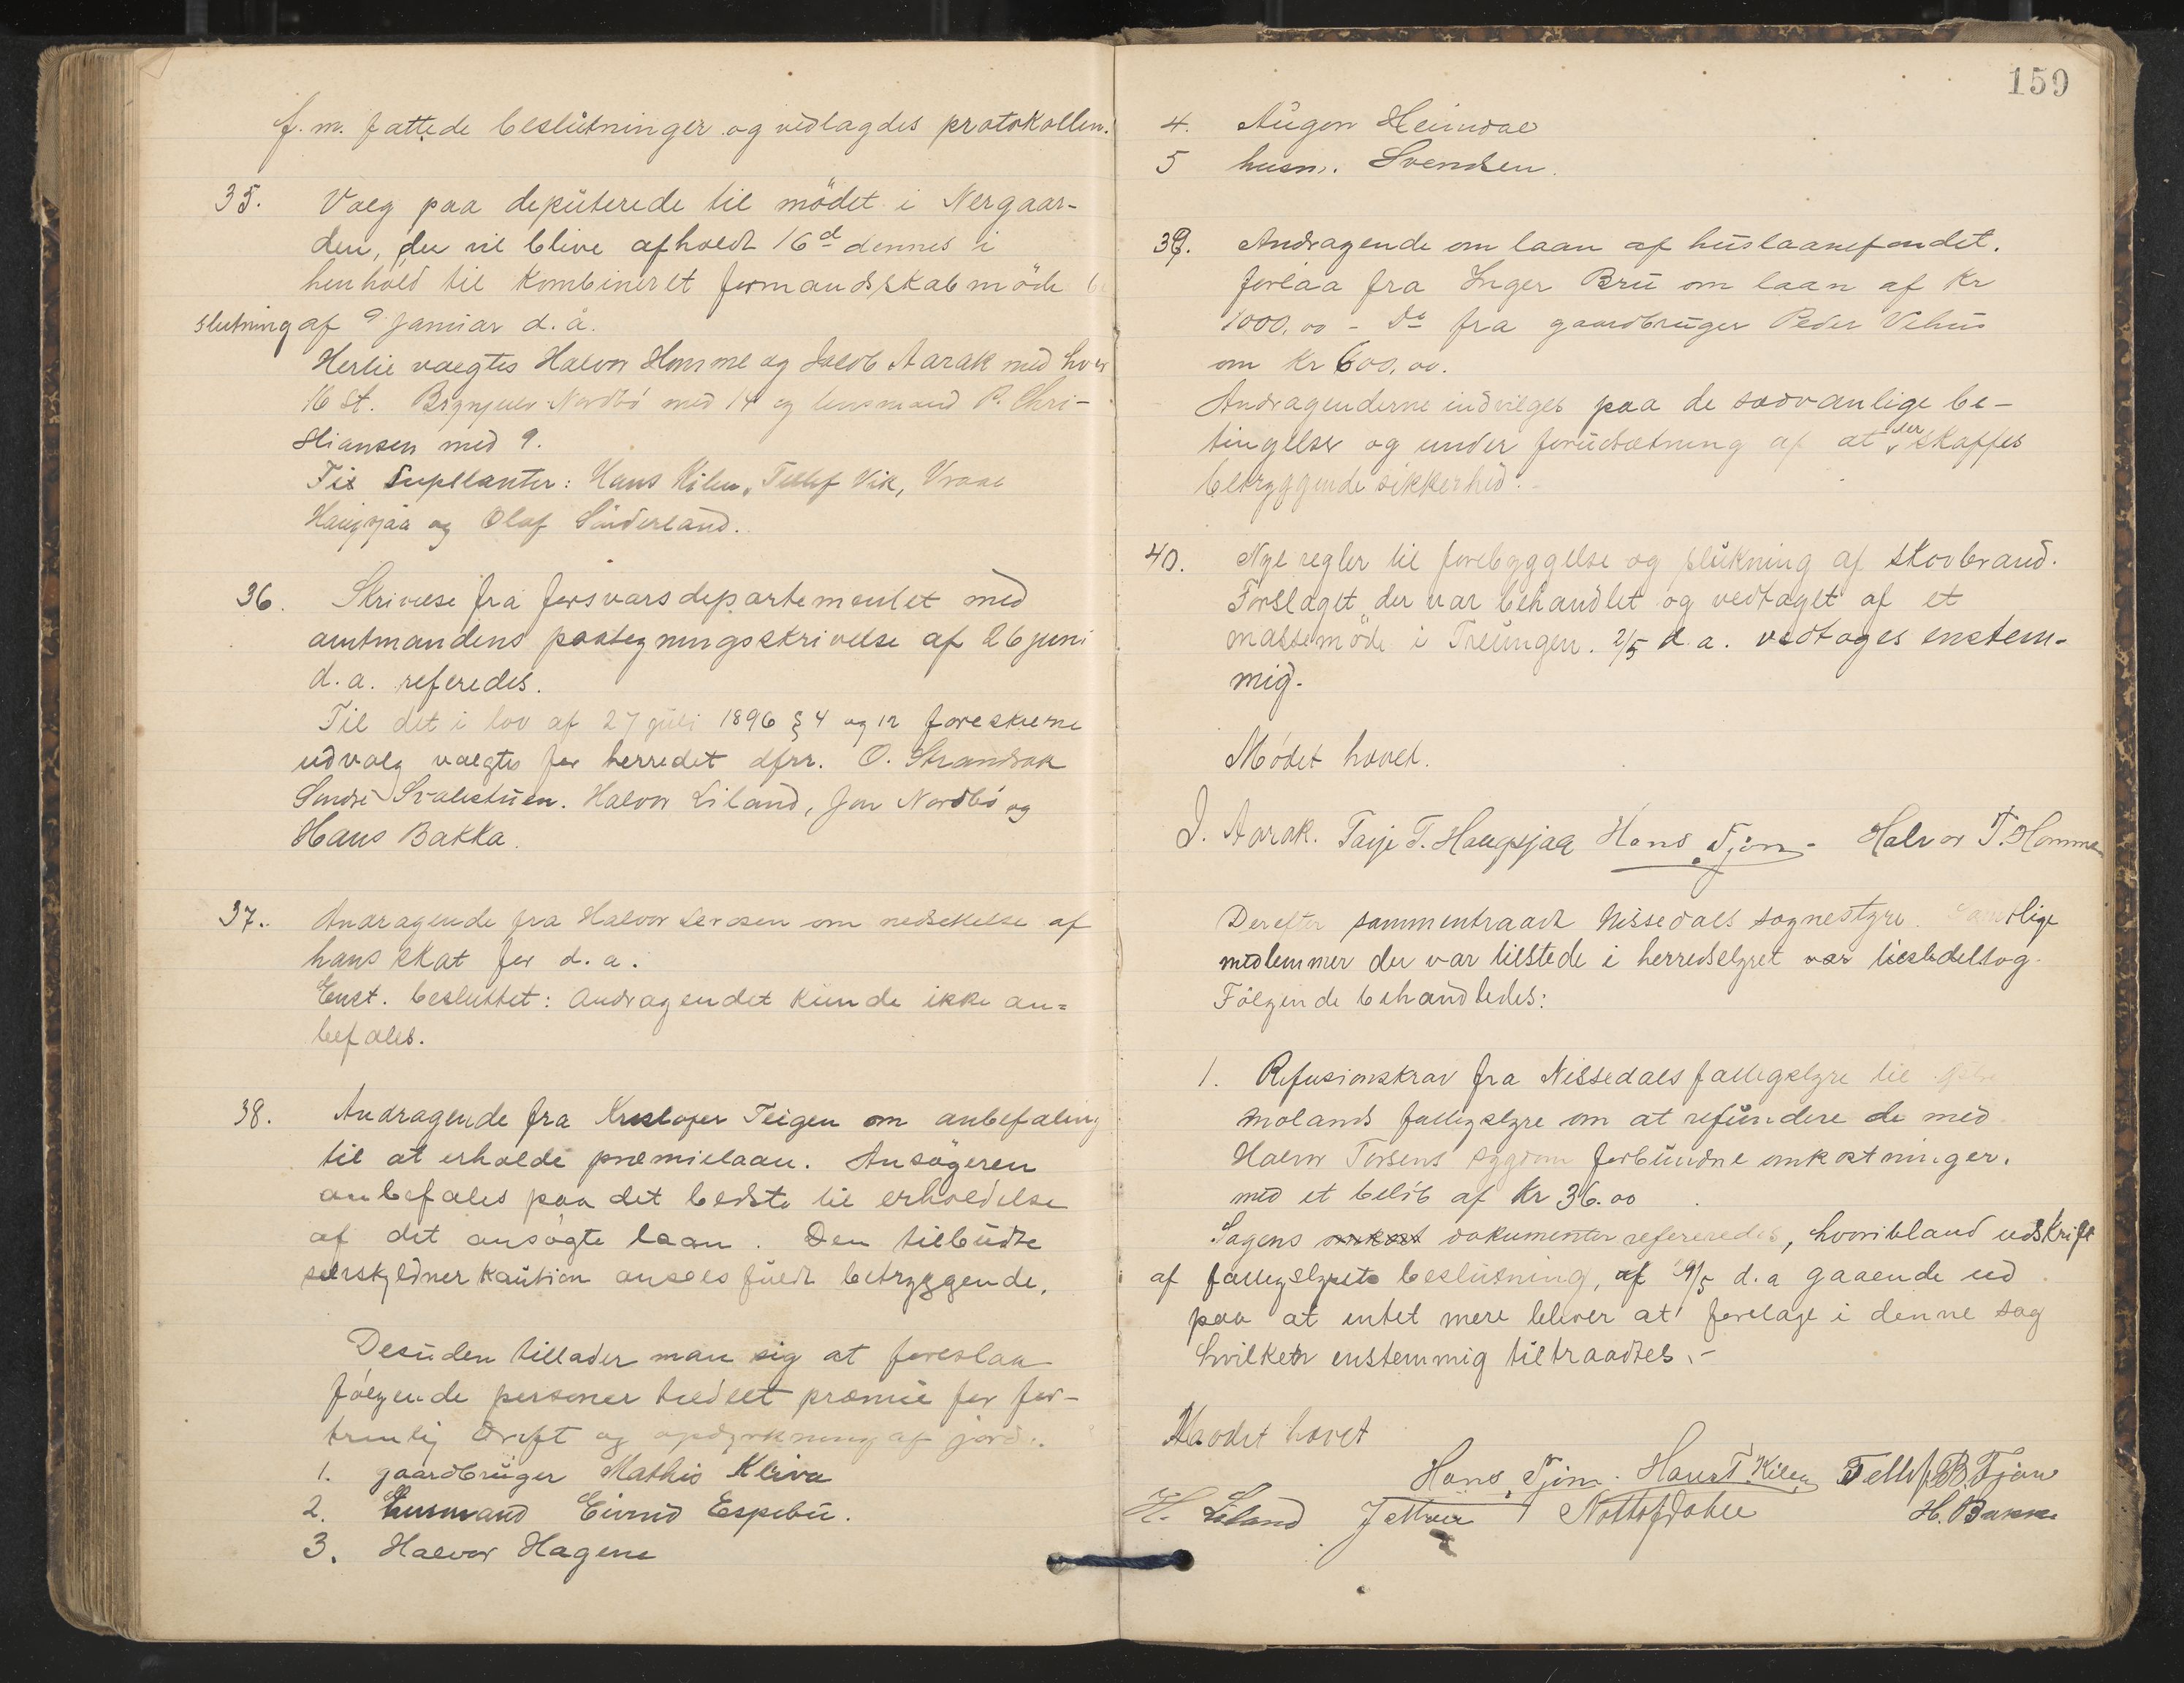 f.m. fattede beslutninger og vedlagdes protokollen.
35. Valg paa deputerede til mödet i Nergaar-
den, der vil blive afholdt 16d dennes i
henhold til kombineret formandskabmöde be
slutning af 9 januar d.å.
Hertil valgtes Halvor Homme og Jacob Aarak med hver
16 st. Brynjulv Nordbö med 14 og lensmand P. Chri-
stiansen med 9.
Til Supleanter: Hans Kilen, Tellef Vik, Vraal
Haugsjaa og Olaf Sönderland.
36. Skrivelse fra forsvarsdepartementet med
amtmandens paategningsskrivelse af 26 juni
d.a. referedes.
Til det i lov af 27 juli 1896 § 4 og 12 foreskrevne
udvalg valgtes for herredet dhrr. O. Strandbak
Sondre Svalestuen. Halvor Liland, Jon Nordbö og
Hans Bakka.
37. Andragende fra Halvor om nedsettelse af
hans skat for d.a.
Enst. besluttet: Andragendet kunde ikke an=
befales.
38. Andragende fra Kristofer Teigen om anbefaling
til at erholde præmielaan. Ansögeren
anbefales paa det bedste til erholdelse
af det ansögte laan. Den tilbudte
selvskyldnerkaution ansees fuldt betryggende.
Desuden tillader man sig at foreslaa
fölgende personer tildelt præmie for for-
trinlig drift og opdyrkning af jord.
1. gaardbruger Mathis Kleiva
2. Husmand Eivind Espebu.
3. Halvor Hagene
159
4. Augon Heimdal
5 husm. Svendsen.
39. Andragende om laan af huslaanefondet.
forlaa fra Inger Bru om laan af Kr
1000,00 - Do fra gaardbruger Peder Vehus
om Kr 600,00.
Andragenderne indvilges paa de sædvanlige be-
tingelser og under forudsætning af at der skaffes
betryggende sikkerhed.-
40. Nye regler til forebyggelse og slukning af skovbrand.
Forslaget, der var behandlet og vedtaget af et
massemöde i Treungen. 2/5 d.a. vedtages enstem-
mig.
Mödet hævet.
J. Aarak. Tarje T. Haugsjaa Hans Tjön. Halvor T. Homme
Derefter sammentraadt Nissedals sognestyre. Samtlige
medlemmer der var tilstede i herredstyret var
Fölgende behandledes:
1. Refusionskrav fra Nissedals fattigstyre til
Molands fattigstyre om at refundere de med
Halvor Torsens sygdom forbundne omkostninger.
med et belöb af Kr 36.00
Sagens dokumenter refereredes, hvoribland udskrift
af fattigstyrets beslutning, af 29/5 d.a gaaende ud
paa at intet mere bliver at foretage i denne sag
hvilken enstemmig tiltraadtes.-
Mödet hævet
Hans Tjön. Hans T. Kilen Tellef B. Tjön
H. Liland H. Bakka